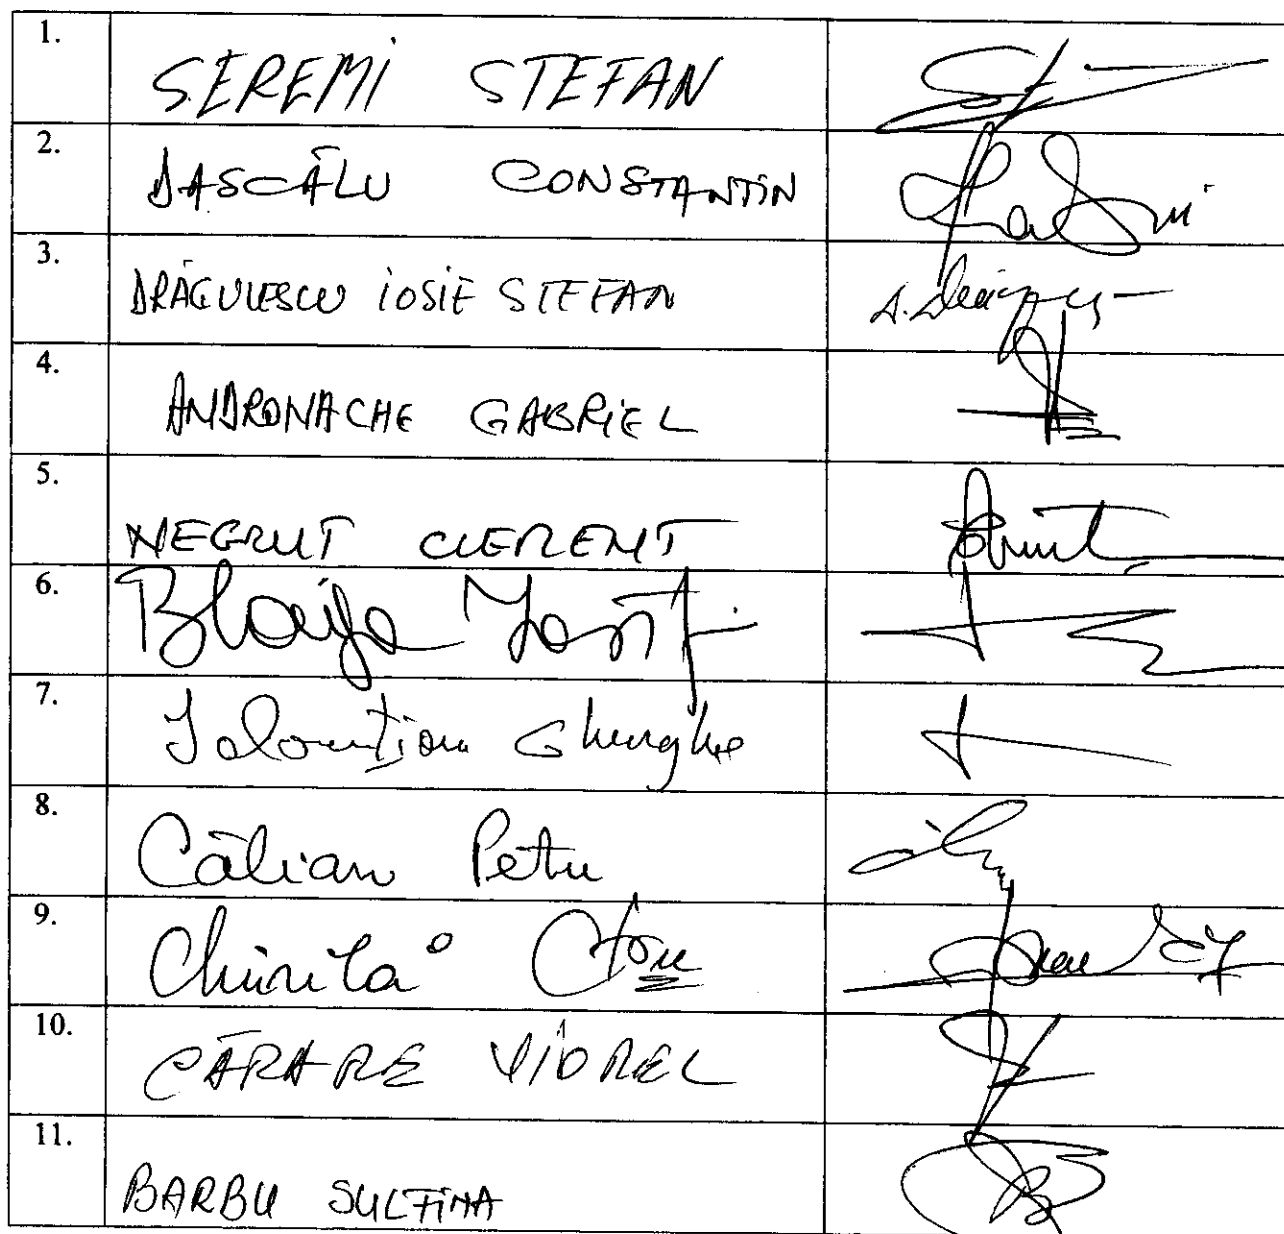 1. SEREMI STEFAN
2. DASCĂLU CONSTANTIN
3. DRĂGULESCU IOSIF STEFAN
4. ANDRONACHE GABRIEL
5. NEGRUT CLEMENT
6. Blaga Iosif
7. Ialomițianu Gheorghe
8. Călian Petru
9. Chirilă
10. CĂRARE VIOREL
11. BARBU SULFINA